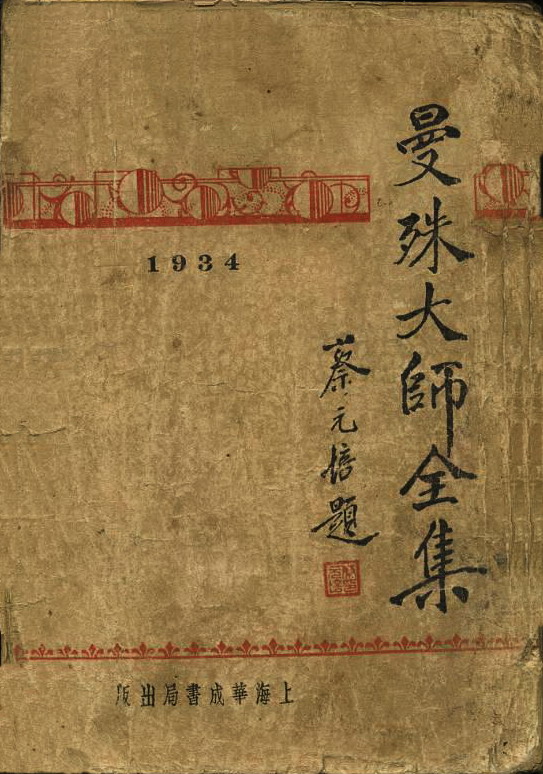 曼殊大師全集
蔡元培題
1934
上海華成書局出版